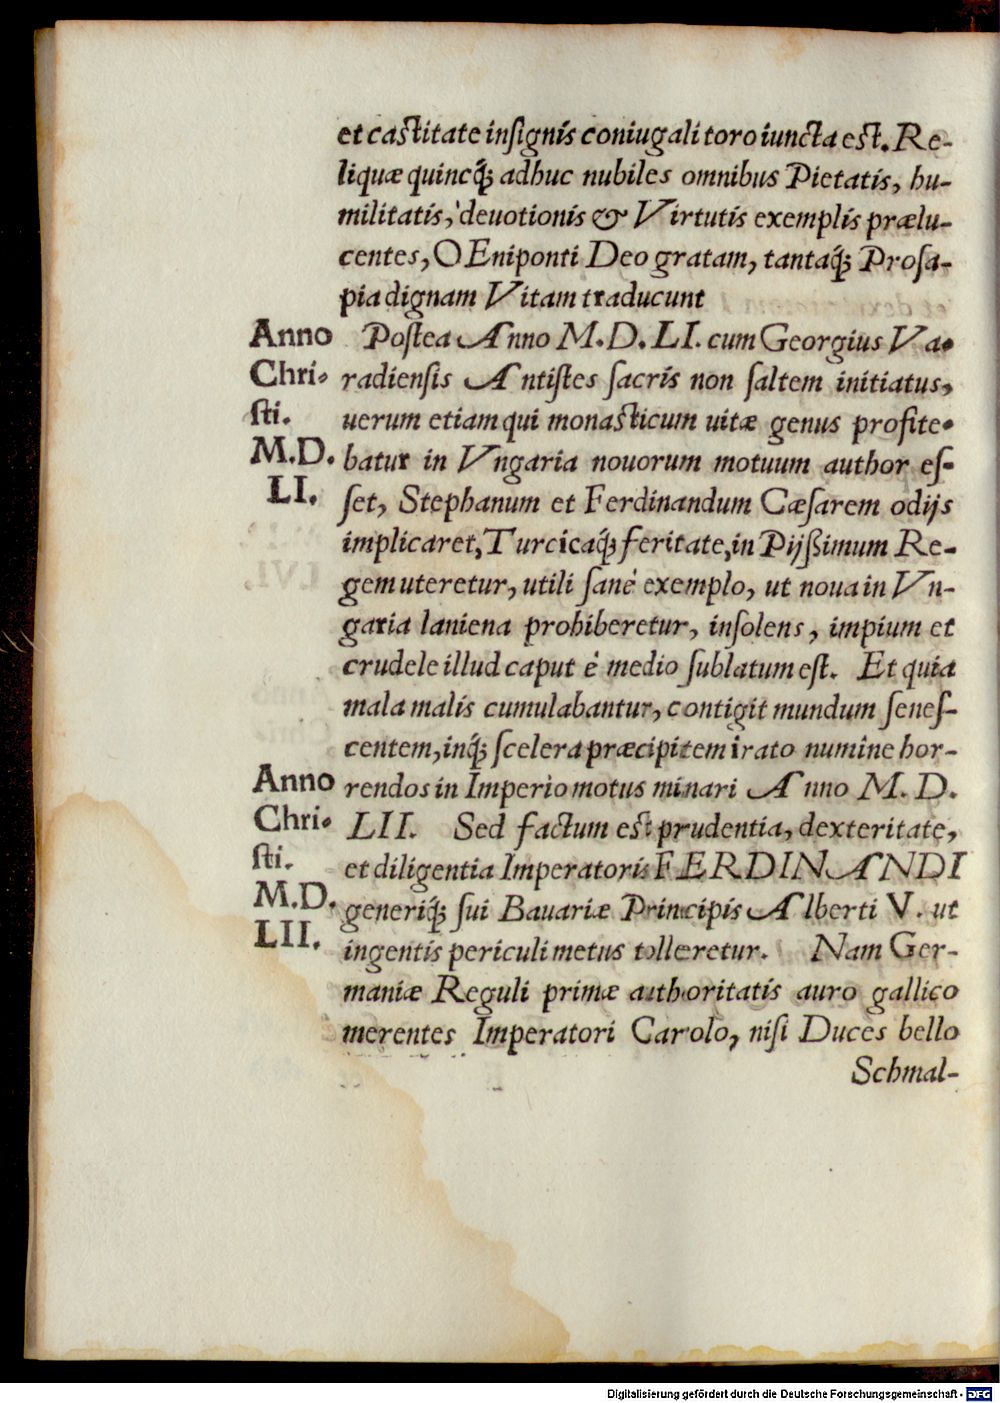 et castitate inſignis coniugali toro iuncta est. Re-
liquæ quincq́ꝫ adhuc nubiles omnibus Pietatis, hu-
militatis, deuotionis & Virtutis exemplis prælu-
centes, OEniponti Deo gratam, tantaq́ꝫ Proſa-
pia dignam Vitam traducunt
Anno
Chri-
ſti.
M.D.
LI.
Poſtea Anno M.D.LI. cum Georgius Va-
radienſis Antiſtes ſacris non ſaltem initiatus,
uerum etiam qui monasticum uitæ genus profite-
batur in Vngaria nouorum motuum author eſ-
ſet, Stephanum et Ferdinandum Cæſarem odijs
implicaret, Turcicaq́ꝫ feritate, in Pijßimum Re-
gem uteretur, utili ſanè exemplo, ut noua in Vn-
garia laniena prohiberetur, inſolens, impium et
crudele illud caput è medio ſublatum eſt. Et quia
mala malis cumulabantur, contigit mundum ſeneſ-
centem, inq́ꝫ ſcelera præcipitem irato numine hor-
Anno
Chri-
ſti.
M.D.
LII.
rendos in Imperio motus minari Anno M. D.
LII. Sed factum est prudentia, dexteritate,
et diligentia Imperatoris FERDINANDI
generiq́ꝫ ſui Bauariæ Principis Alberti V. ut
ingentis periculi metus tolleretur. Nam Ger-
maniæ Reguli primæ authoritatis auro gallico
merentes Imperatori Carolo, niſi Duces bello
Schmal-
Digitalisierung gefördert durch die Deutsche Forschungsgemeinschaft - DFG